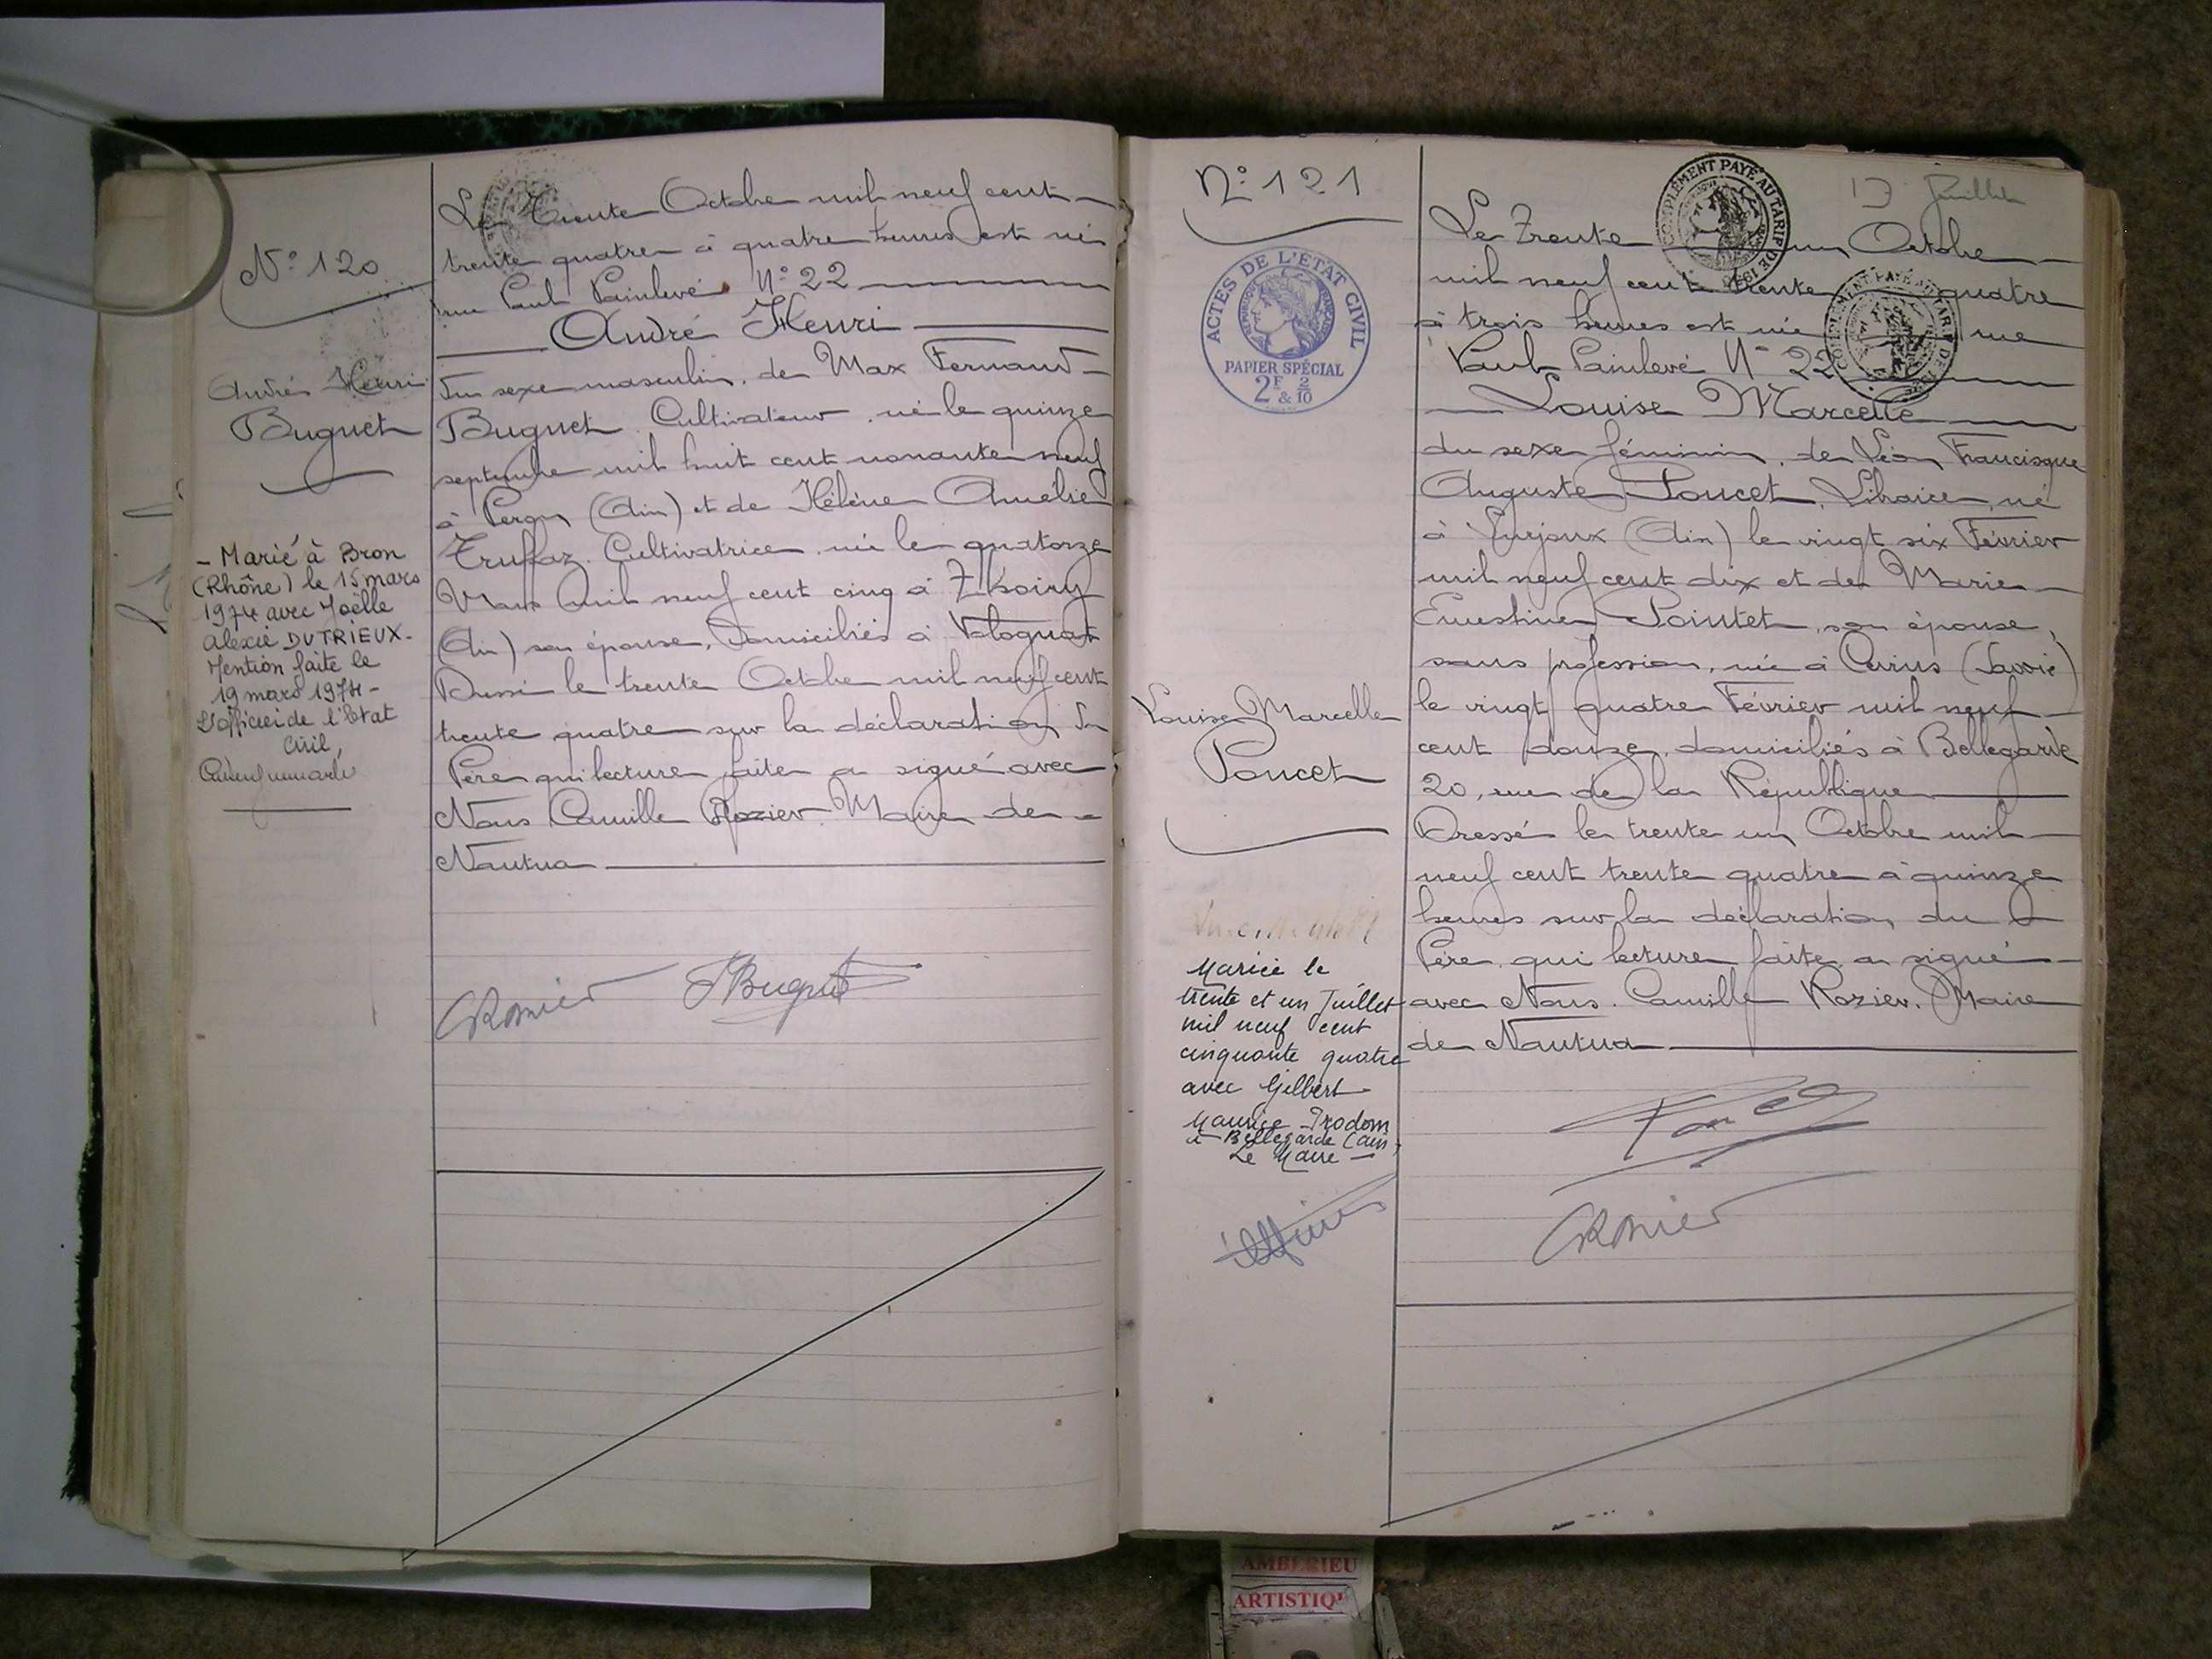 N° 120
André Henri
Buguet
- Marié à Bron
(Rhône) le 15 mars
1974 avec Joëlle
Alexie DUTRIEUX.
Mention faite le
19 mars 1974 -
L'officier de l'Etat
Civil,
Le Trente Octobre mil neuf cent
trente quatre à quatre heures est né
rue Paul Painlevé N° 22
André Henri
du sexe masculin, de Max Fernand
Buguet Cultivateur né le quinze
septembre mil huit cent nonante neuf
à Peron (Ain) et de Hélène Amélie
Truffaz Cultivatrice née le quatorze
Mars mil neuf cent cinq à Thoiry
(Ain) son épouse, domiciliés à Volognat
Dressé le trente Octobre mil neuf cent
trente quatre sur la déclaration du
Père qui lecture faite a signé avec
Nous Camille Rozier Maire de
Nantua
CRozier Buguet
N° 121
ACTES DE L'ÉTAT CIVIL
RÉPUBLIQUE FRANÇAISE
PAPIER SPÉCIAL
2F & 2/10
Louise Marcelle
Poncet
Mariée le
trente et un Juillet
mil neuf cent
cinquante quatre
avec Gilbert
Maurice Prodom
à Bellegarde (Ain)
Le Maire -
COMPLÉMENT PAYÉ AU TARIF DE
COMPLÉMENT PAYÉ AU TARIF DE
Juillet
Le Trente un Octobre
mil neuf cent trente quatre
à trois heures est née rue
Paul Painlevé N° 22
Louise Marcelle
du sexe féminin, de Léon Francisque
Auguste Poncet, Libraire, né
à Injoux (Ain) le vingt six Février
mil neuf cent dix et de Marie
Ernestine Pointet, son épouse,
sans profession, née à Curius (Savoie)
le vingt quatre Février mil neuf
cent douze, domiciliés à Bellegarde
20, rue de la République
Dressé le trente un Octobre mil
neuf cent trente quatre à quinze
heures sur la déclaration du
Père qui lecture faite a signé
avec Nous Camille Rozier, Maire
de Nantua
Poncet
CRozier
AMBERIEU
ARTISTIQ